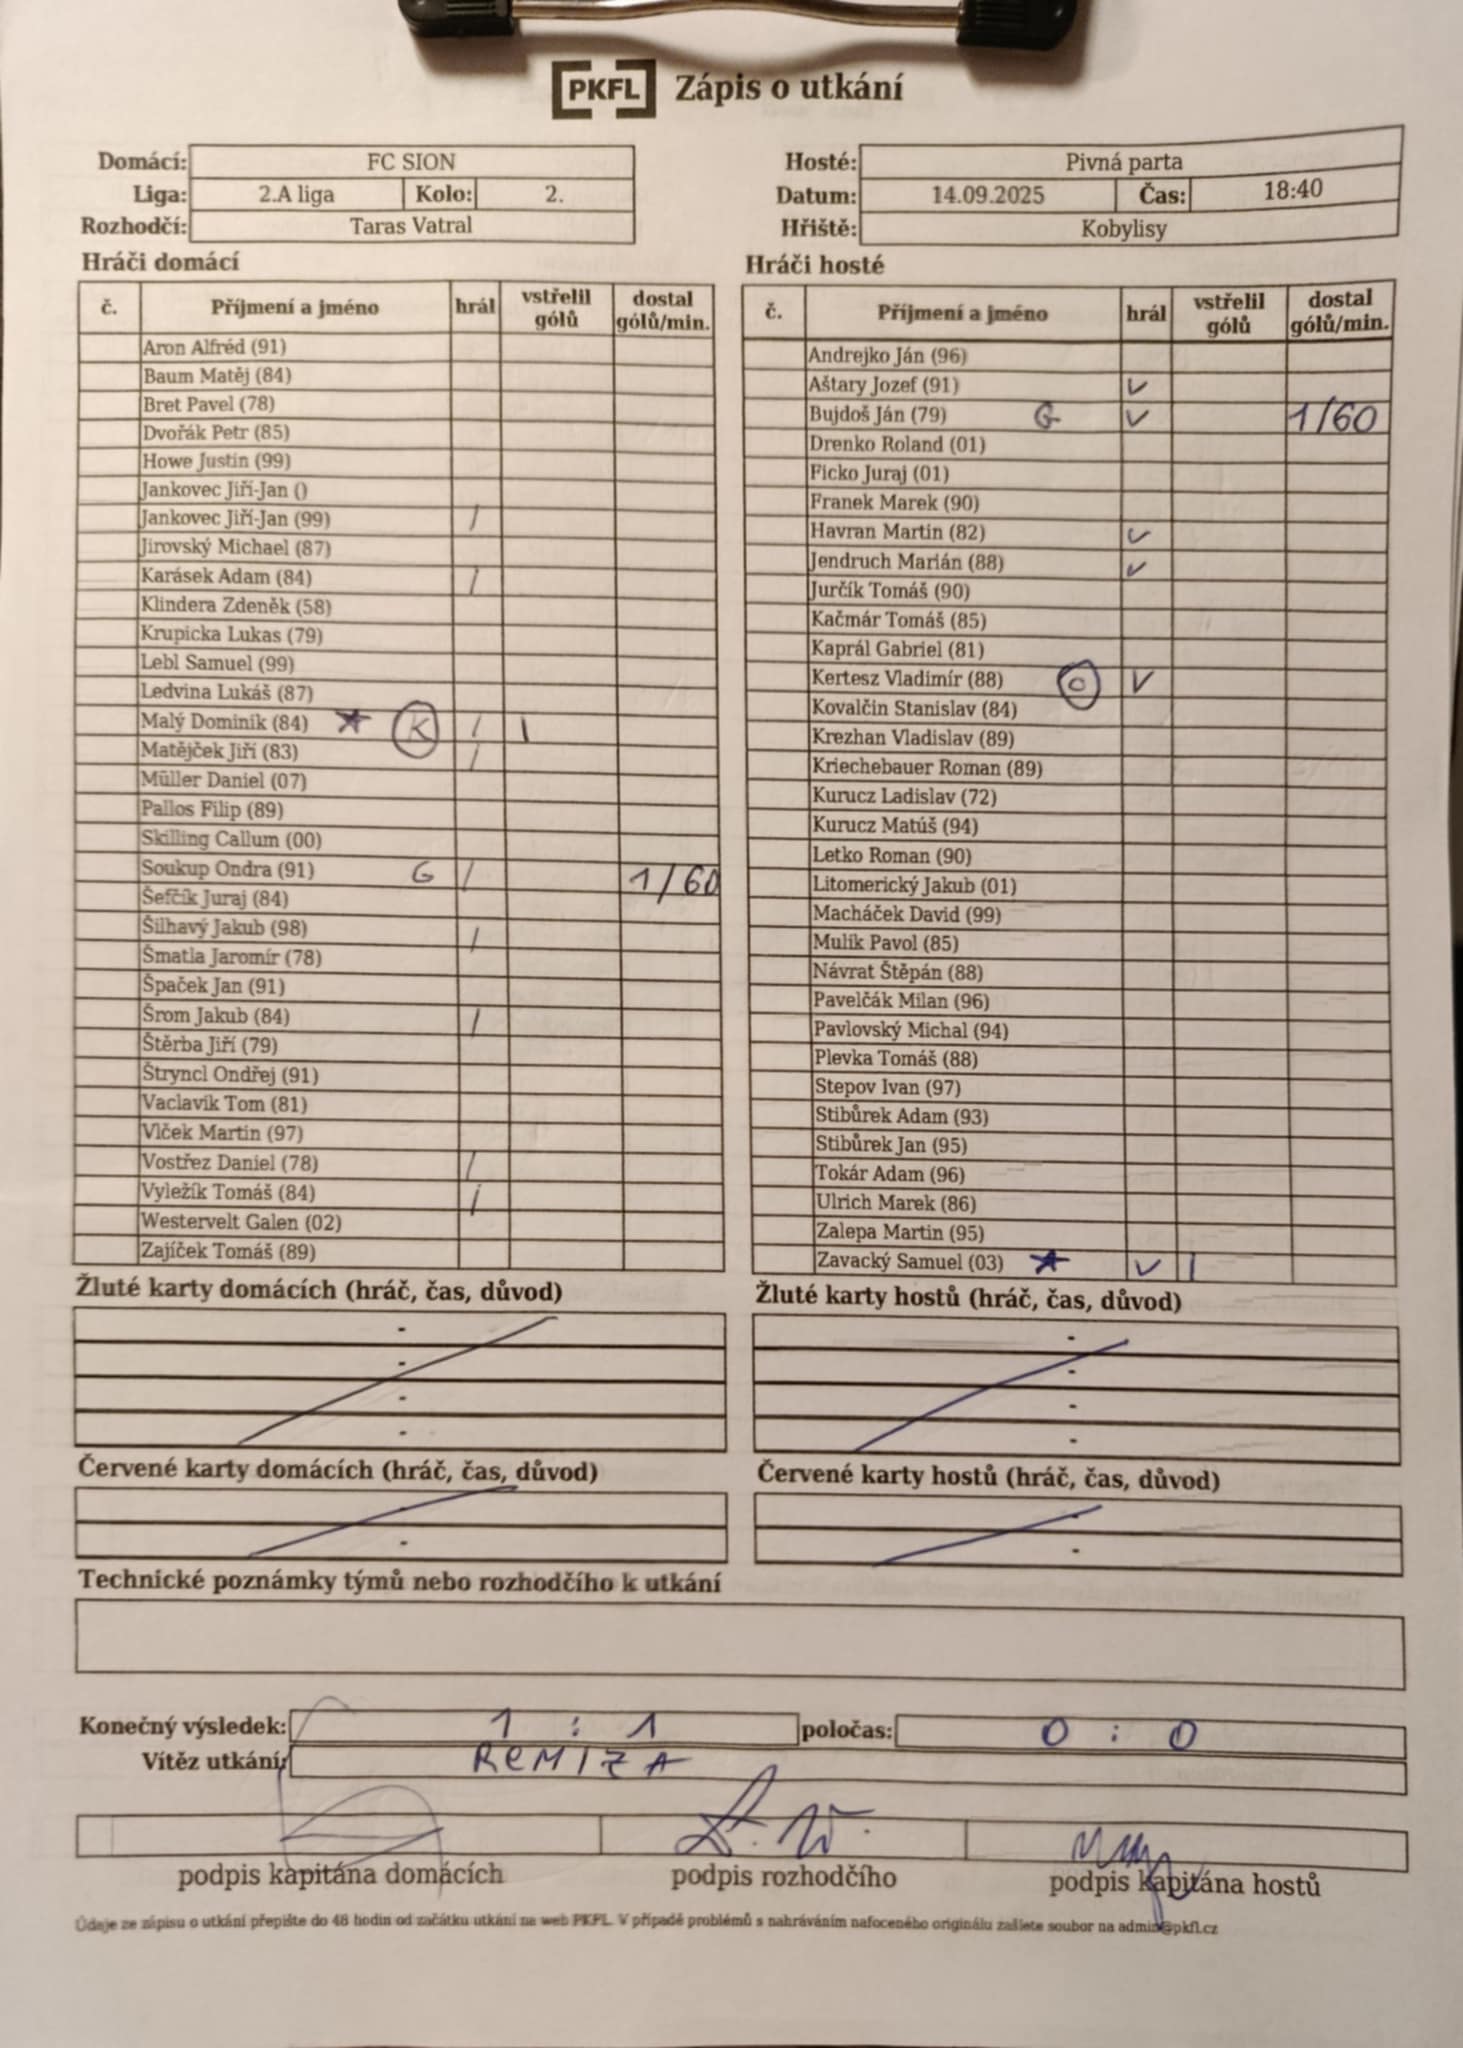 PKFL Zápis o utkání
Domácí: FC SION
Liga: 2.A liga Kolo: 2.
Rozhodčí: Taras Vatral
Hosté: Pivná parta
Datum: 14.09.2025 Čas: 18:40
Hřiště: Kobylisy
Hráči domácí
č. Příjmení a jméno hrál vstřelil gólů dostal gólů/min.
Aron Alfréd (91)
Baum Matěj (84)
Bret Pavel (78)
Dvořák Petr (85)
Howe Justin (99)
Jankovec Jiří-Jan ()
Jankovec Jiří-Jan (99) /
Jirovský Michael (87)
Karásek Adam (84) /
Klindera Zdeněk (58)
Krupicka Lukas (79)
Lebl Samuel (99)
Ledvina Lukáš (87)
Malý Dominik (84) ★ K / |
Matějček Jiří (83) /
Müller Daniel (07)
Pallos Filip (89)
Skilling Callum (00)
Soukup Ondra (91) G / 1/60
Šefčík Juraj (84)
Šilhavý Jakub (98) /
Šmatla Jaromír (78)
Špaček Jan (91)
Šrom Jakub (84) /
Štěrba Jiří (79)
Štryncl Ondřej (91)
Vaclavik Tom (81)
Vlček Martin (97)
Vostřez Daniel (78) /
Vyležík Tomáš (84) /
Westervelt Galen (02)
Zajíček Tomáš (89)
Hráči hosté
č. Příjmení a jméno hrál vstřelil gólů dostal gólů/min.
Andrejko Ján (96)
Aštary Jozef (91) ✓
Bujdoš Ján (79) G ✓ 1/60
Drenko Roland (01)
Ficko Juraj (01)
Franek Marek (90)
Havran Martin (82) ✓
Jendruch Marián (88) ✓
Jurčík Tomáš (90)
Kačmár Tomáš (85)
Kaprál Gabriel (81)
Kertesz Vladimír (88) C ✓
Kovalčin Stanislav (84)
Krezhan Vladislav (89)
Kriechebauer Roman (89)
Kurucz Ladislav (72)
Kurucz Matúš (94)
Letko Roman (90)
Litomerický Jakub (01)
Macháček David (99)
Mulík Pavol (85)
Návrat Štěpán (88)
Pavelčák Milan (96)
Pavlovský Michal (94)
Plevka Tomáš (88)
Stepov Ivan (97)
Stibůrek Adam (93)
Stibůrek Jan (95)
Tokár Adam (96)
Ulrich Marek (86)
Zalepa Martin (95)
Zavacký Samuel (03) ★ ✓ |
Žluté karty domácích (hráč, čas, důvod)
-
-
-
-
Žluté karty hostů (hráč, čas, důvod)
-
-
-
-
Červené karty domácích (hráč, čas, důvod)
-
-
Červené karty hostů (hráč, čas, důvod)
-
-
Technické poznámky týmů nebo rozhodčího k utkání
Konečný výsledek: 1 : 1 poločas: 0 : 0
Vítěz utkání: REMIZA
podpis kapitána domácích podpis rozhodčího podpis kapitána hostů
Údaje ze zápisu o utkání přepište do 48 hodin od začátku utkání na web PKFL. V případě problémů s nahráváním nafoceného originálu zašlete soubor na admin@pkfl.cz